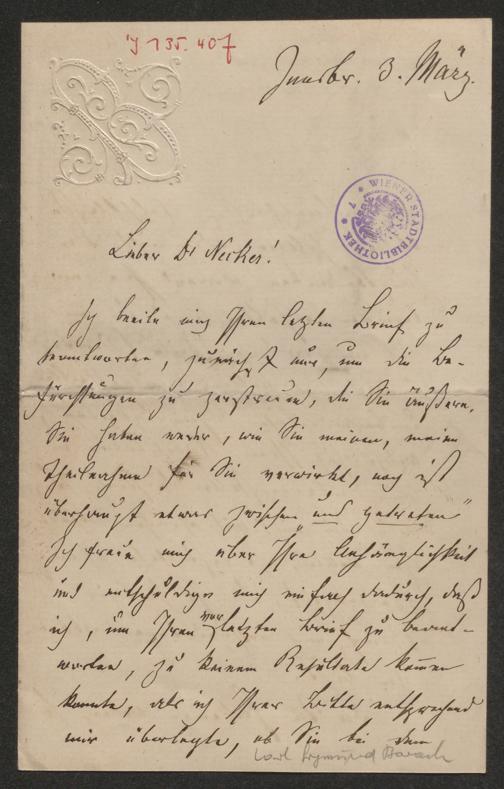 J 135.407
Innsbr. 3. März.
WIENER STADTBIBLIOTHEK
Lieber Dr Necker!
Ich beeile mich Ihren letzten Brief zu
beantworten, zunächst nur, um die Be-
fürchtungen zu zerstreuen, die Sie äußern.
Sie haben weder, wie Sie meinen, meine
Theilnahme für Sie verwirkt, noch ist
überhaupt etwas zwischen „uns getreten"
Ich freue mich über Ihre Anhänglichkeit
und entschuldige mich einfach dadurch, daß
ich, um Ihren vorletzten Brief zu beant-
worten, zu keinem Resultate kommen
konnte, als ich Ihrer Bitte entsprechend
mir überlegte, ob Sie bei dem
Carl Sigmund Barach